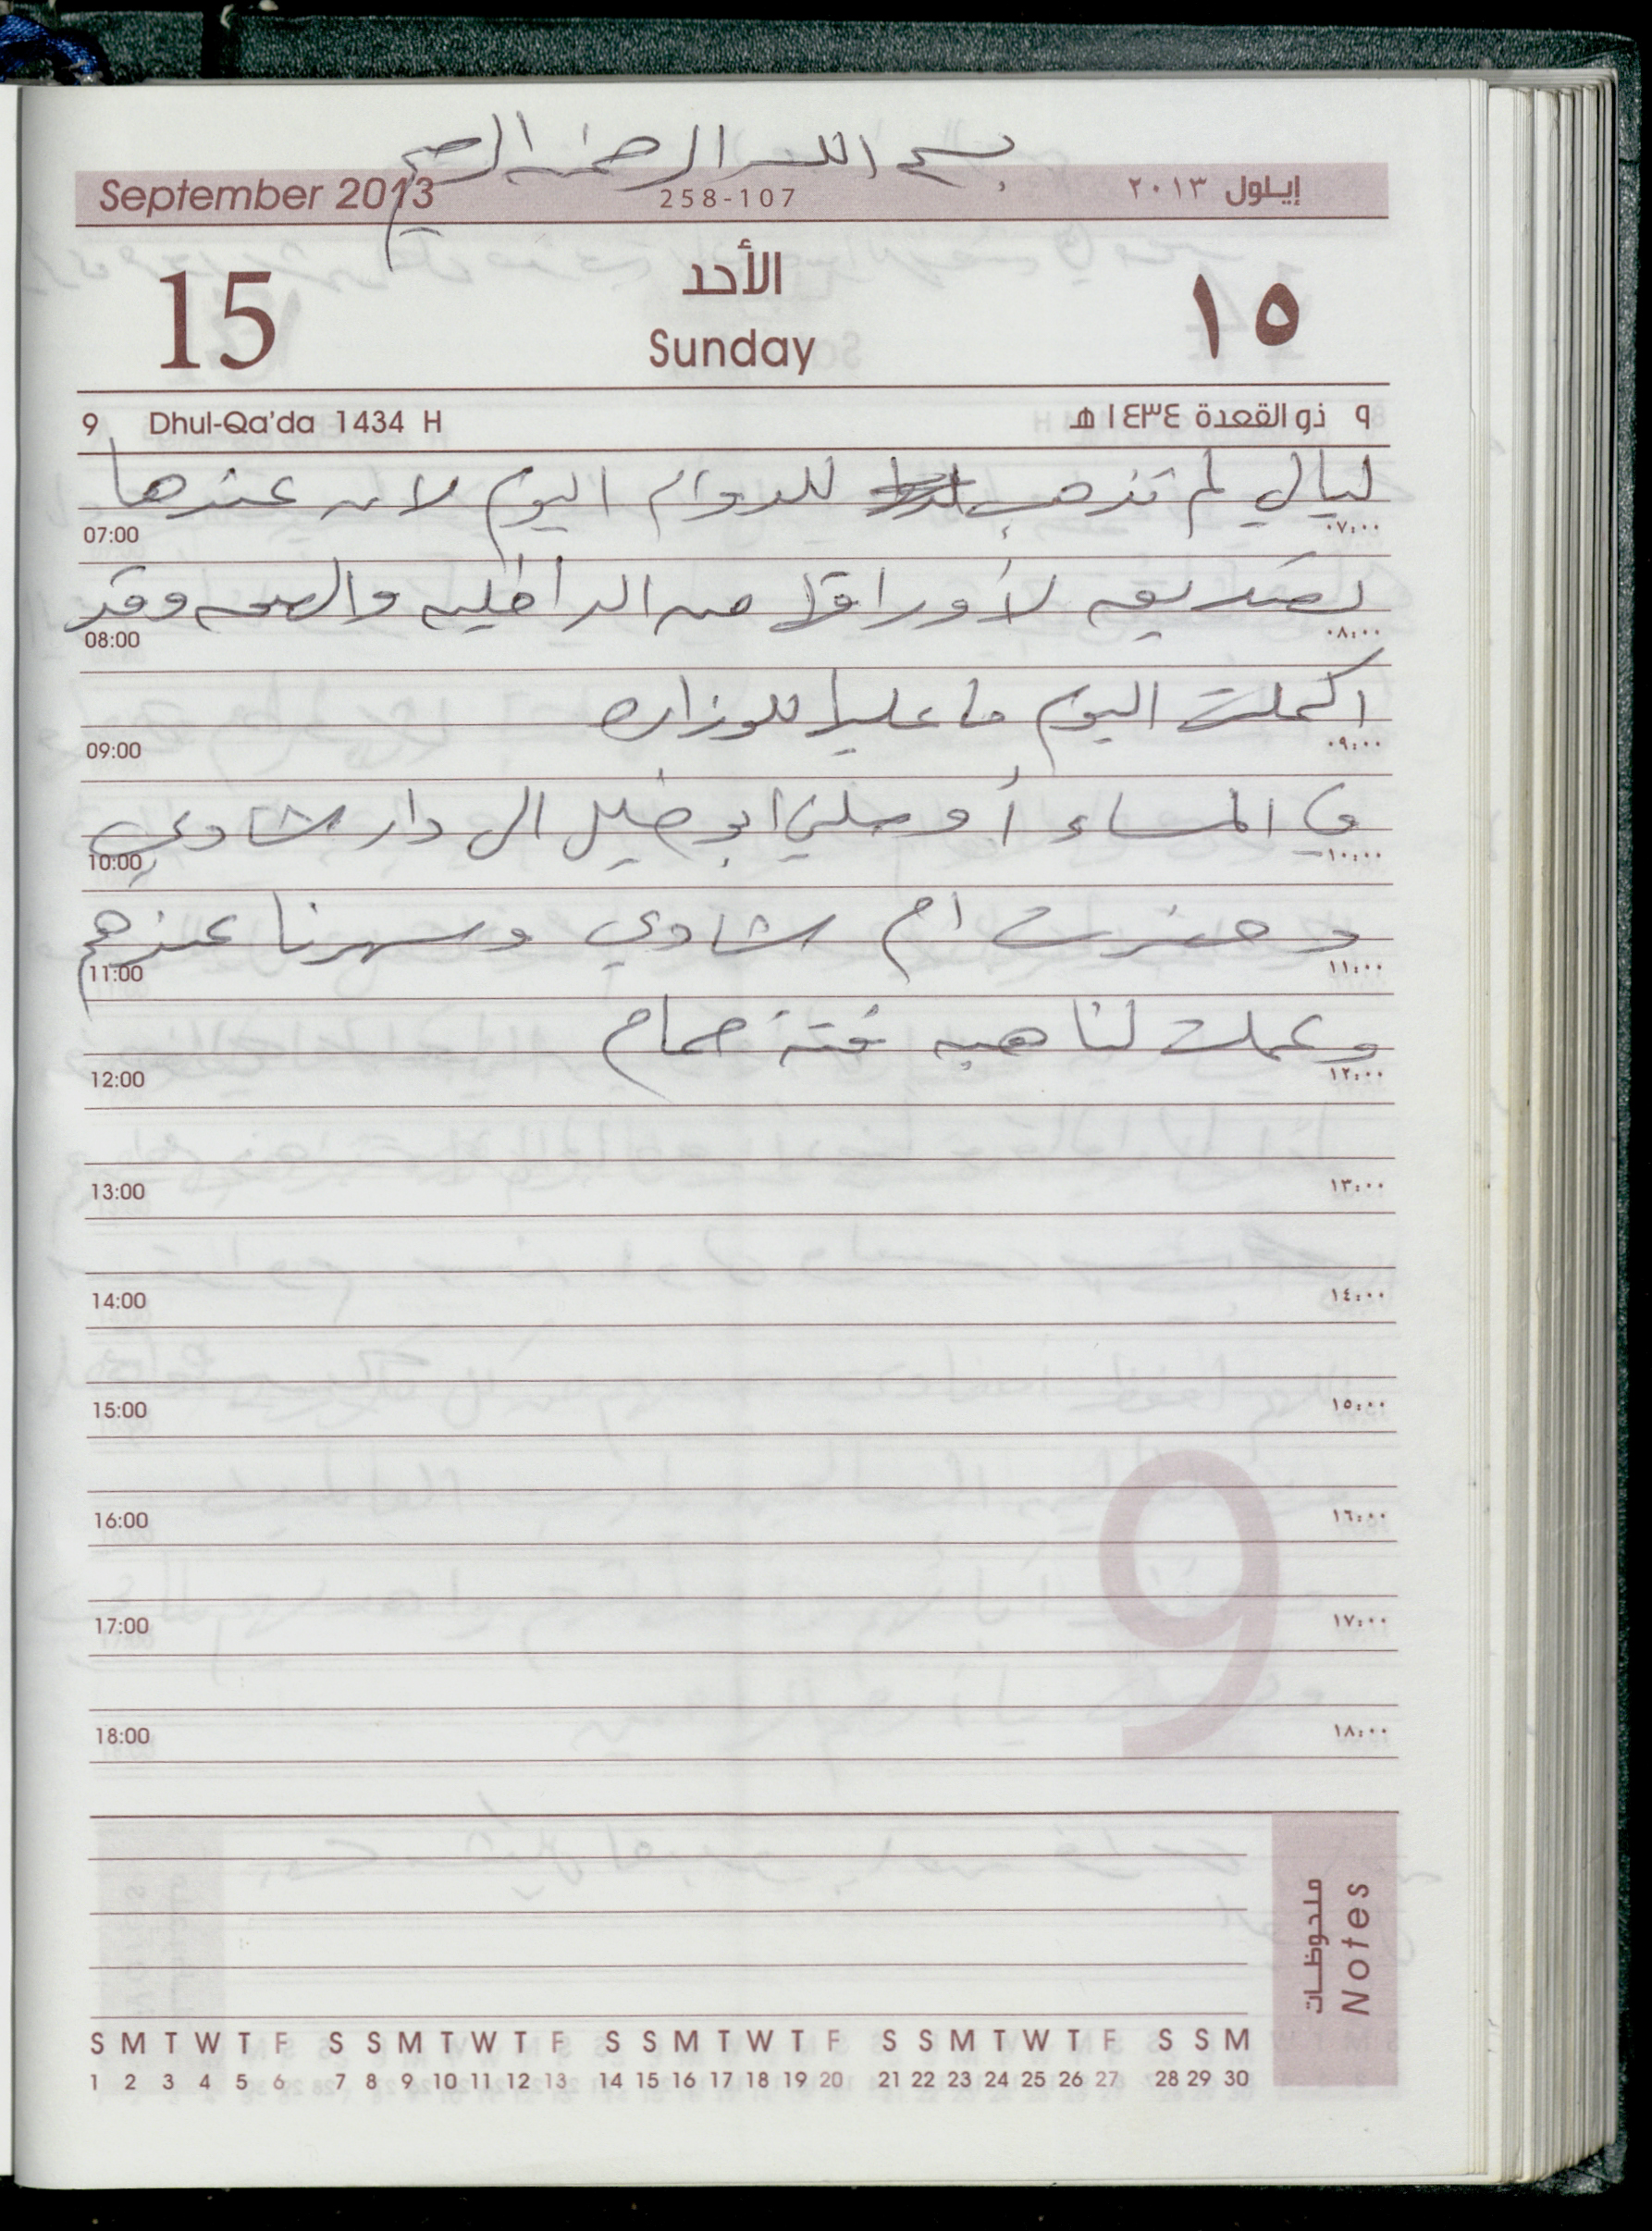 بسم الله الرحمن الرحيم
September 2013 258-107 إيلول ٢٠١٣
15 الأحد ١٥
Sunday
9 Dhul-Qa'da 1434 H ٩ ذو القعدة ١٤٣٤ هـ
ليالي لم تذهب للدوام اليوم لان عندها
07:00 ٠٧:٠٠
تصديق لأوراقها من الداخليه والصحه وقد
08:00 ٠٨:٠٠
اكملت اليوم ما عليها للوزاره
09:00 ٠٩:٠٠
في المساء أوصلني ابو خليل الى دار شادي
10:00 ١٠:٠٠
وحضرت ام شادي وسهرنا عندهم
11:00 ١١:٠٠
وعملت لنا هبه فتة حمام
12:00 ١٢:٠٠
13:00 ١٣:٠٠
14:00 ١٤:٠٠
15:00 ١٥:٠٠
16:00 ١٦:٠٠
9
17:00 ١٧:٠٠
18:00 ١٨:٠٠
ملحوظات
Notes
S M T W T F S S M T W T F S S M T W T F S S M T W T F S S M
1 2 3 4 5 6 7 8 9 10 11 12 13 14 15 16 17 18 19 20 21 22 23 24 25 26 27 28 29 30